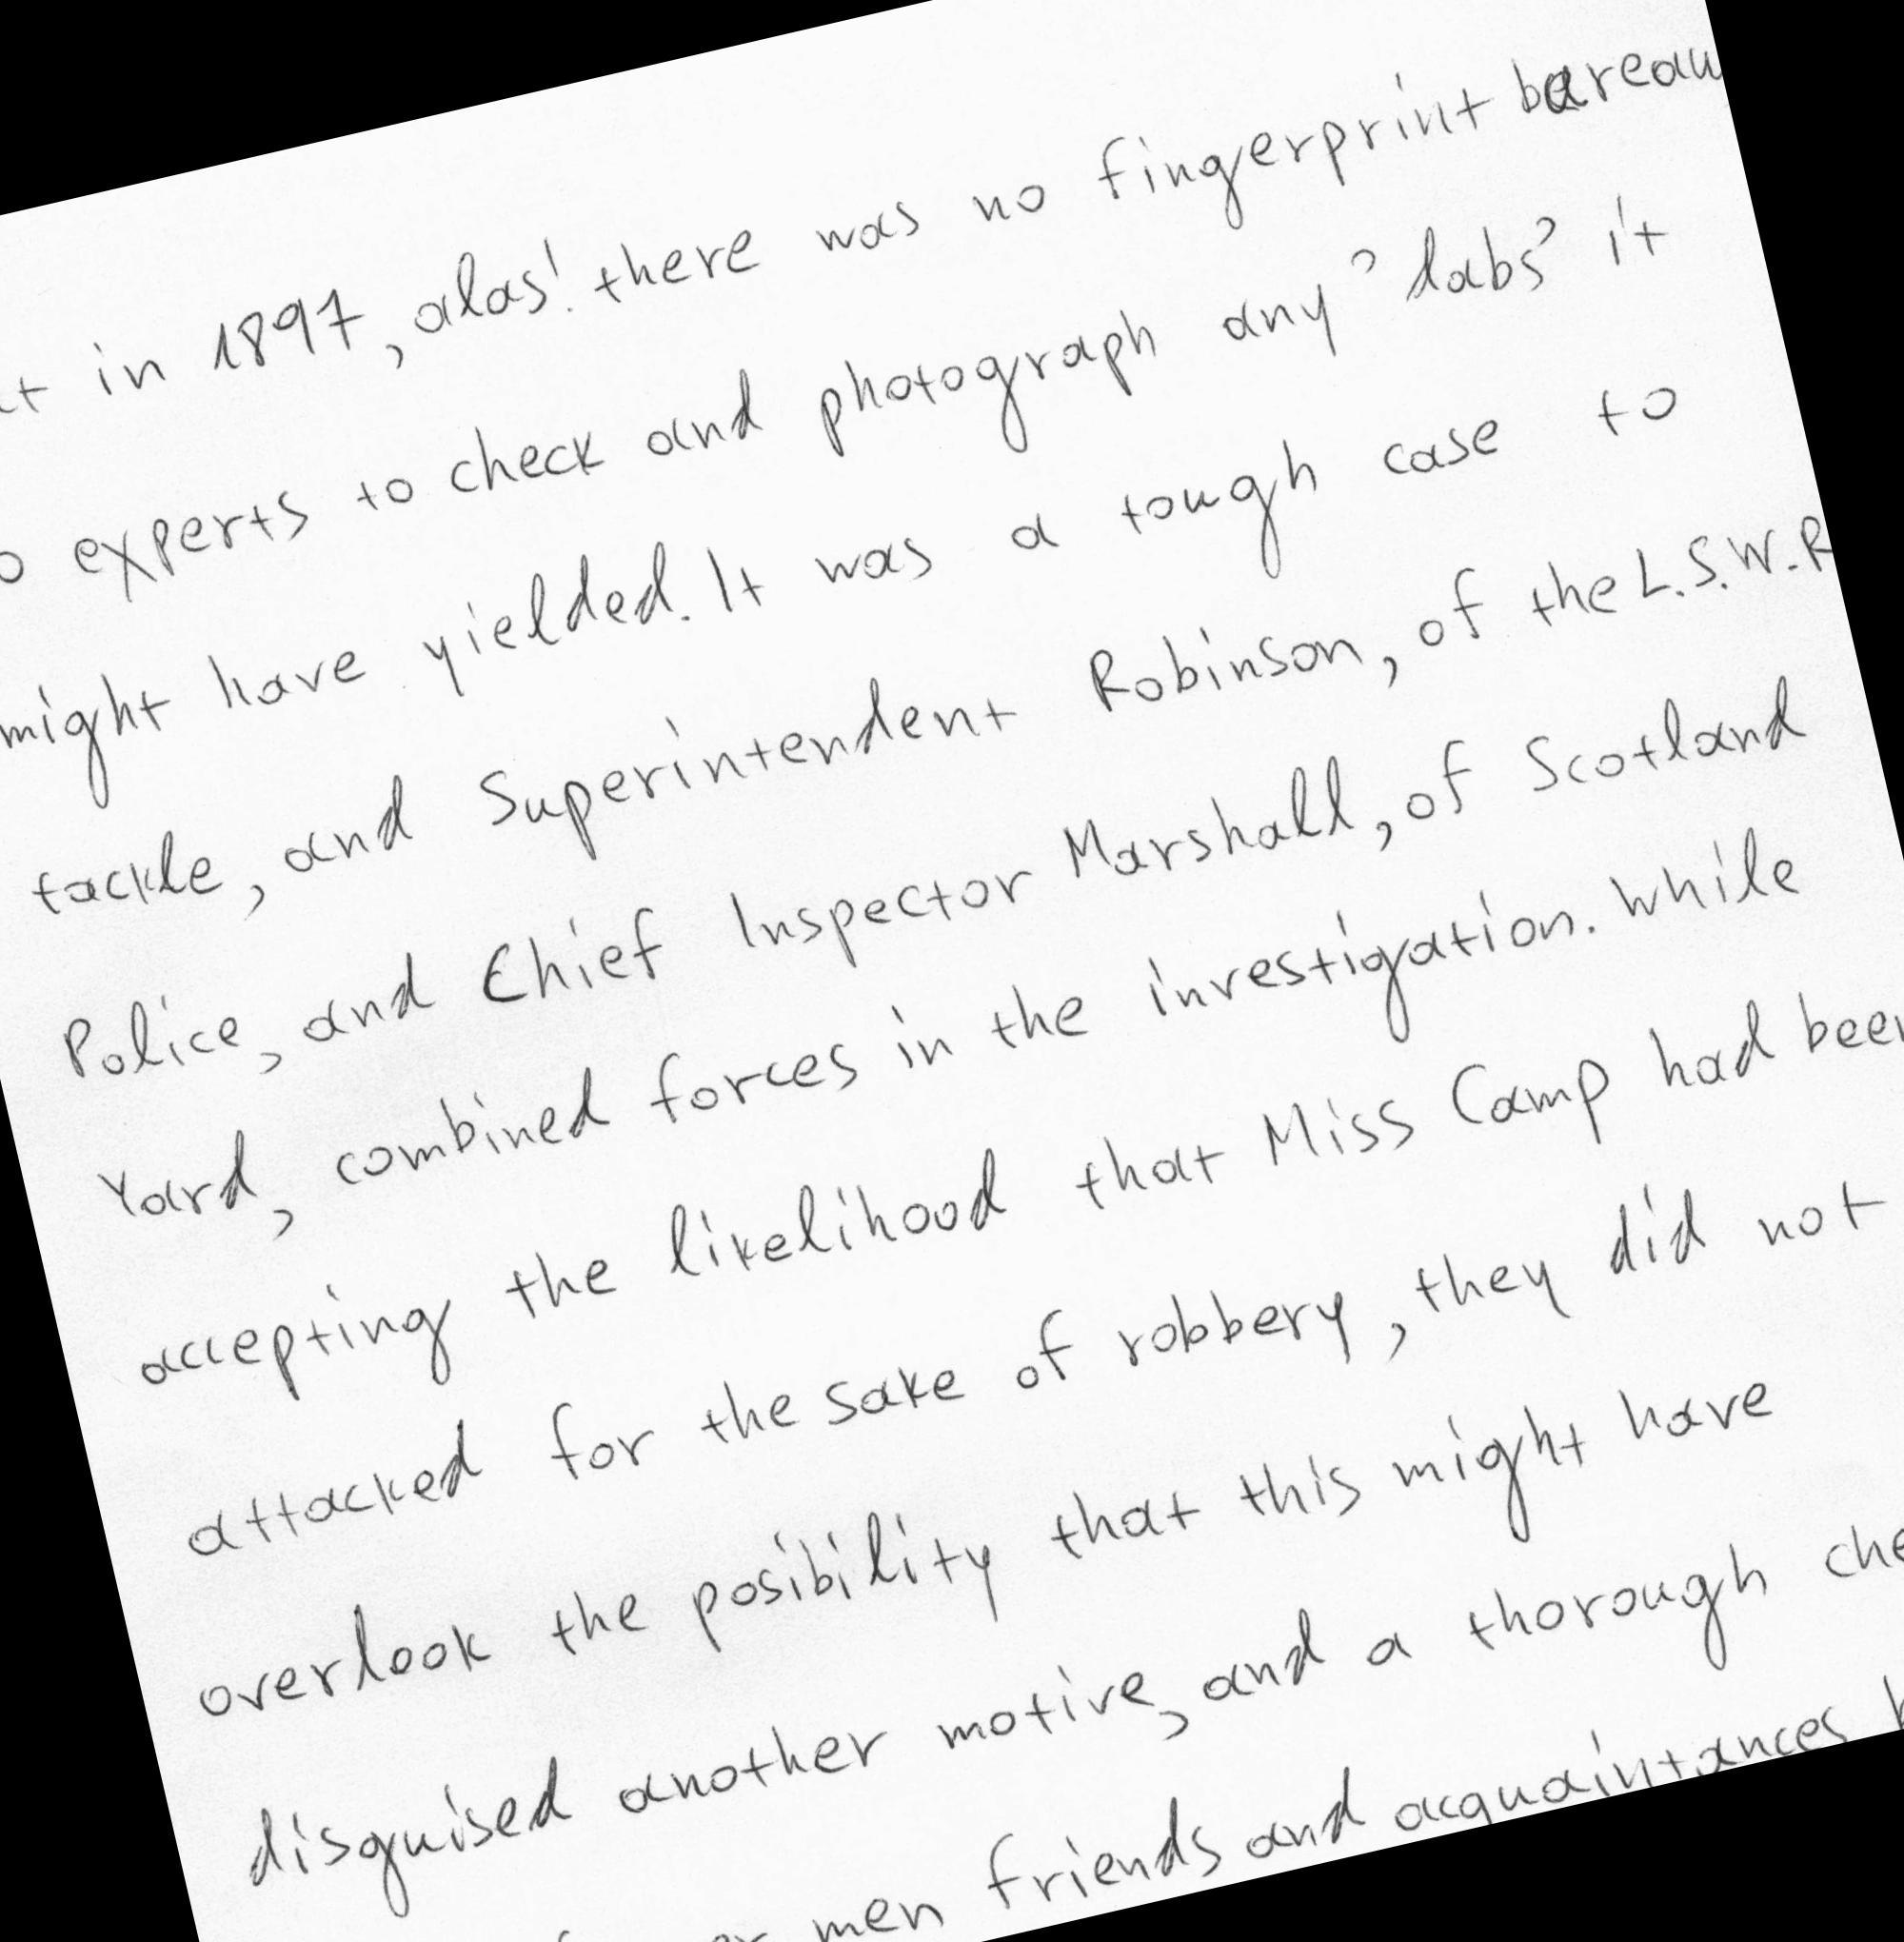 in 1897, alas! there was no fingerprint bareau
experts to check and photograph any 'labs' it
might have yielded. It was a tough case to
tackle, and Superintendent Robinson, of the L.S.W.R
Police, and Chief Inspector Marshall, of Scotland
Yard, combined forces in the investigation. While
accepting the likelihood that Miss Camp had been
attacked for the sake of robbery, they did not
overlook the posibility that this might have
disguised another motive, and a thorough
men friends and acquaintances